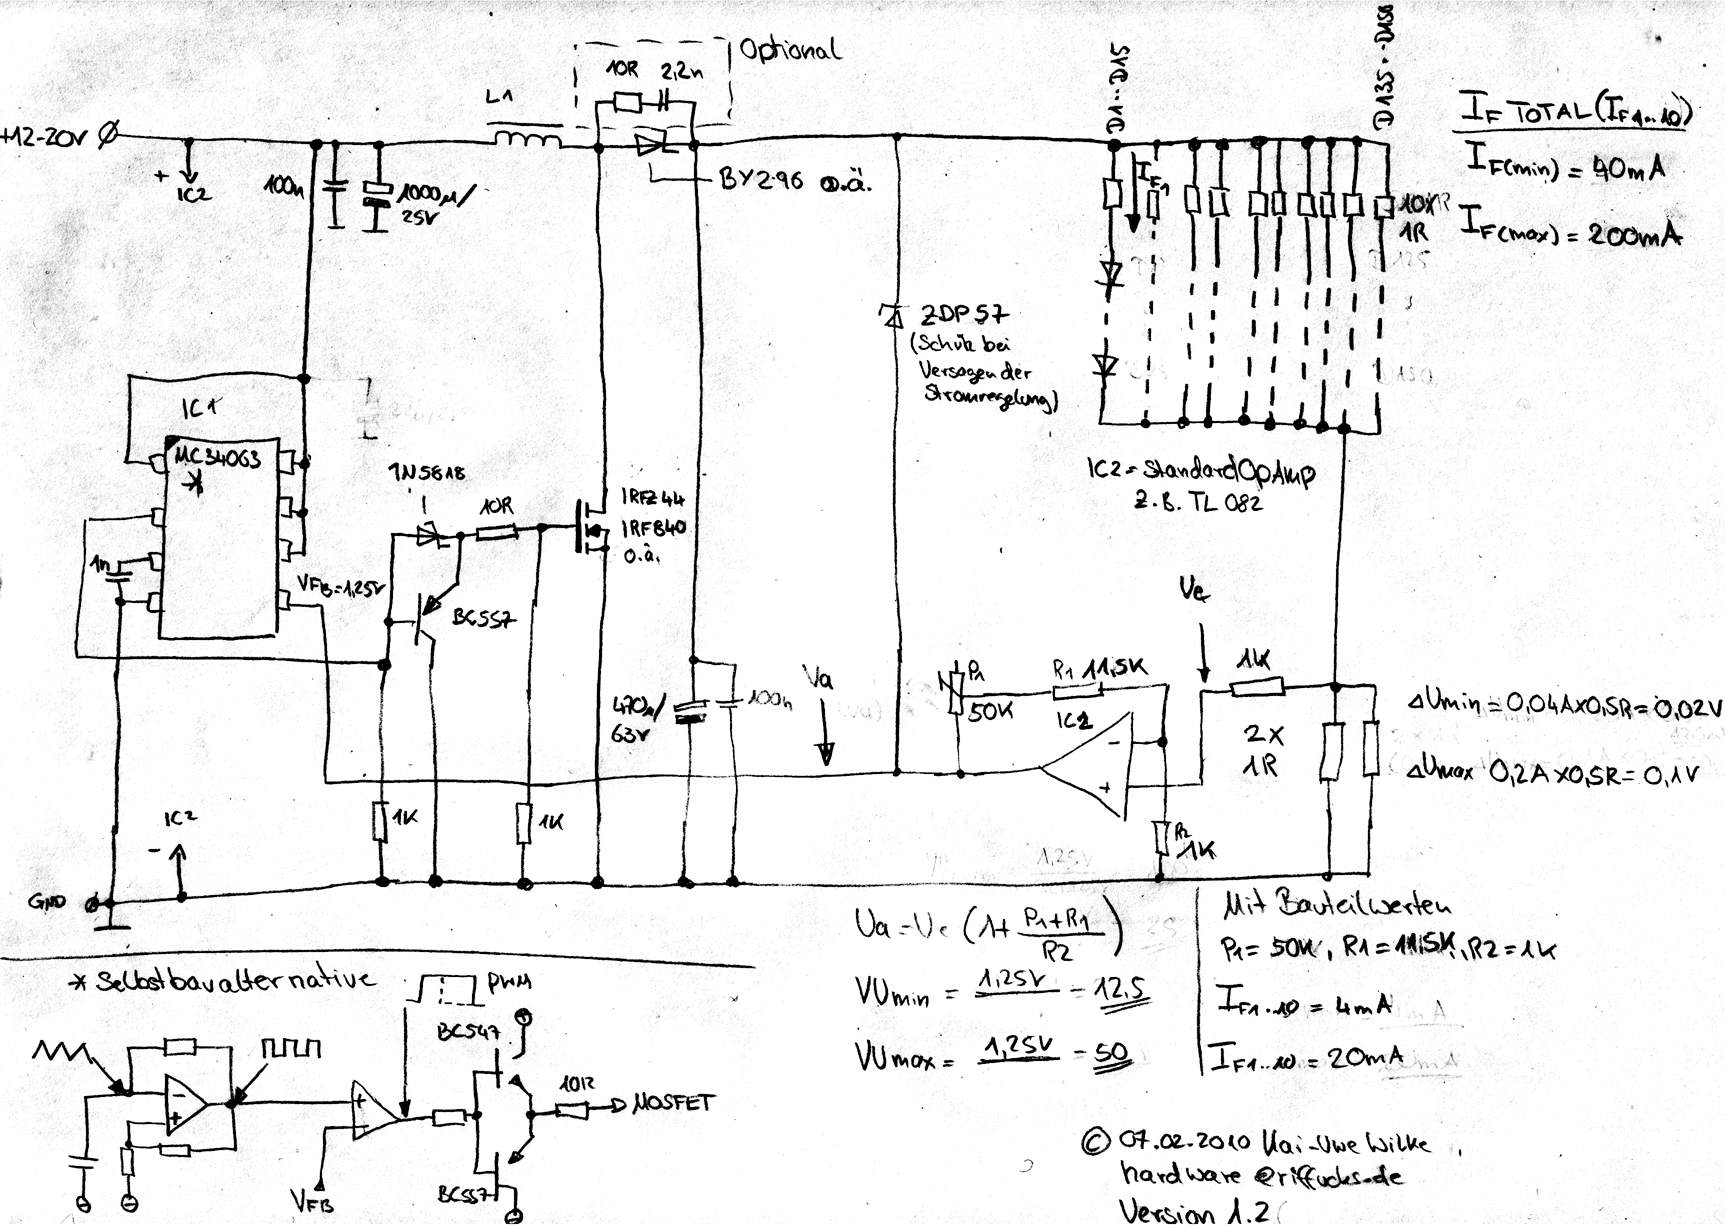 Optional
10R 2,2n
L1
+12-20V
+ IC2
100n
1000µ/
25V
BY296 o.ä.
D1..D15
D135..D150
IF1
10X
1R
IF TOTAL (IF1..10)
IF(min) = 40mA
IF(max) = 200mA
ZDP57
(Schutz bei
Versagen der
Stromregelung)
IC1
MC34063
*
1n
VFB=1,25V
1N5818
10R
BC557
IRFZ44
IRF840
o.ä.
IC2 = Standard OpAmp
z.B. TL 082
Ve
1K
P1
50K
R1 11,5K
IC2
-
+
2X
1R
ΔUmin = 0,04A x 0,5R = 0,02V
ΔUmax 0,2A x 0,5R = 0,1V
Va
470µ/
63V
100n
1K
1K
R2
1K
IC2
-
GND
Ua = Ue (1 + P1+R1
R2 )
VUmin = 1,25V = 12,5
VUmax = 1,25V = 50
Mit Bauteilwerten
P1 = 50K, R1 = 11,5K, R2 = 1K
IF1..10 = 4mA
IF1..10 = 20mA
* Selbstbaualternative
PWM
BC547
10R
MOSFET
VFB
BC557
© 07.02.2010 Kai-Uwe Wilke
hardware@riffucks.de
Version 1.2